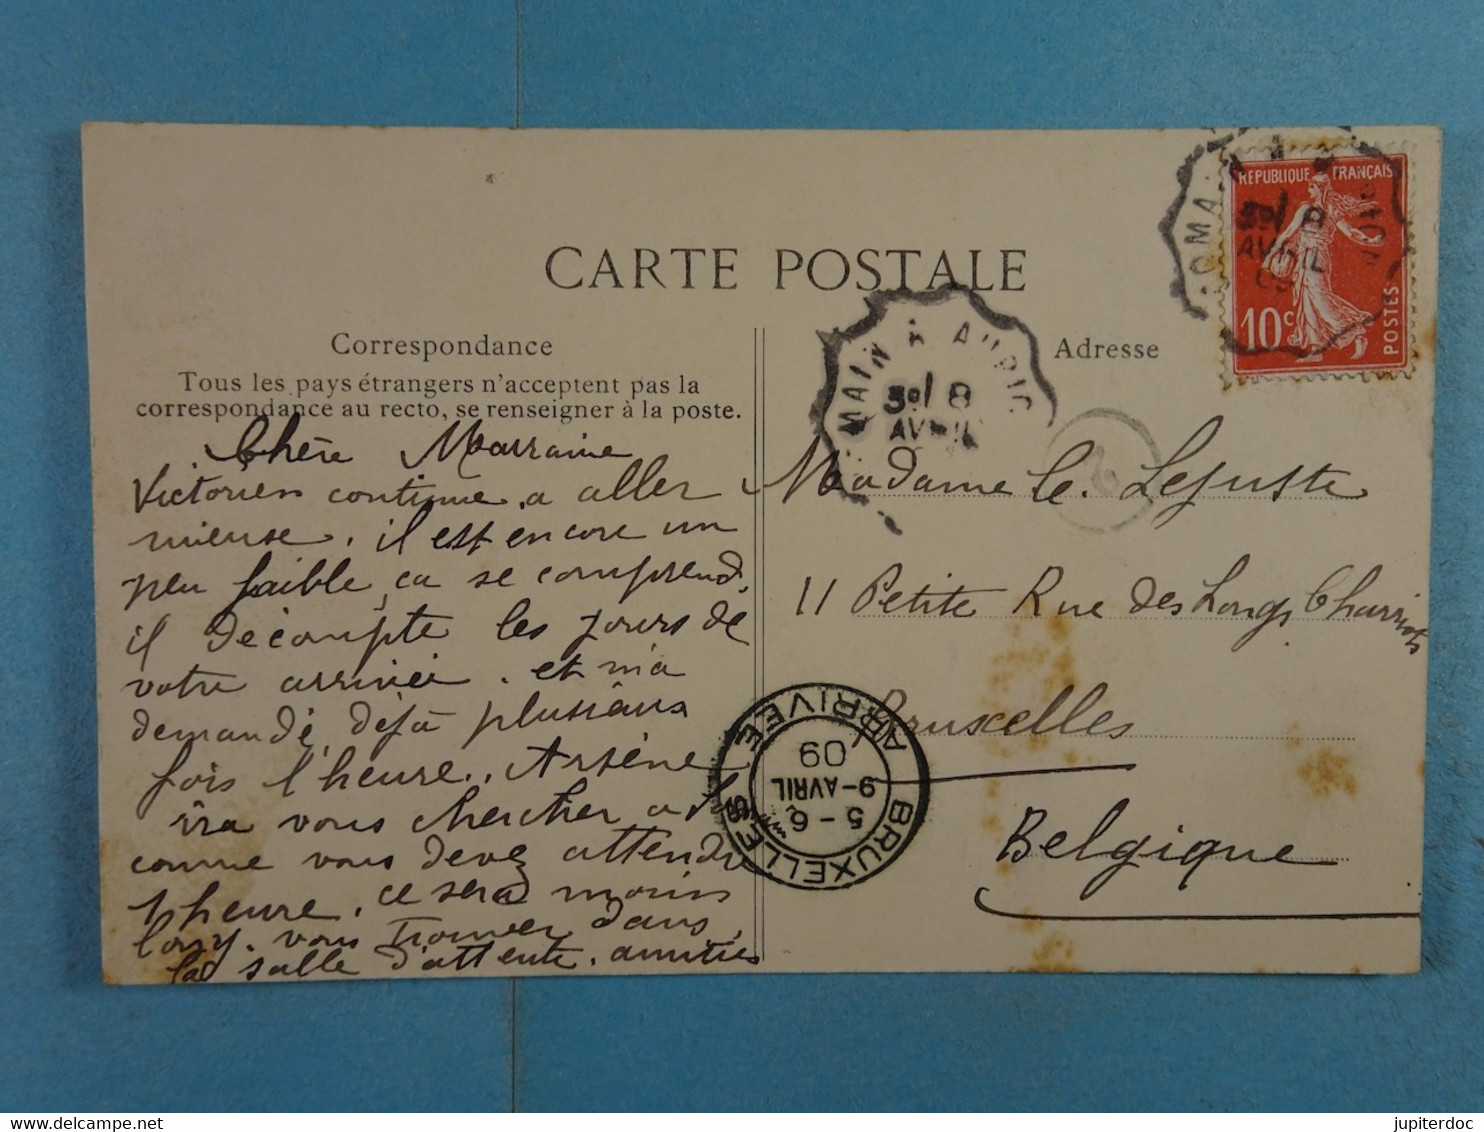 CARTE POSTALE
Correspondance
Tous les pays étrangers n'acceptent pas la
correspondance au recto, se renseigner à la poste.
Chère Marraine
Victorien continue a aller
mieuse. il est encore un
peu faible, ca se comprend,
il décompte les jours de
votre arrivée. et m'a
demandé déjà plusieurs
fois l'heure. Arsène
ira vous chercher a
comme vous devez attendre
1 heure. ce sera moins
long. vous trouver dans
la salle d'attente. amitiés
Adresse
Madame Le Lejuste
11 Petite Rue des Longs Chariots
Bruxelles
Belgique
REPUBLIQUE FRANÇAISE
10c
POSTES
8
AVRIL
MAIN A
8
AVRIL
BRUXELLES ARRIVEE
5-6
9-AVRIL
09
jupiterdoc